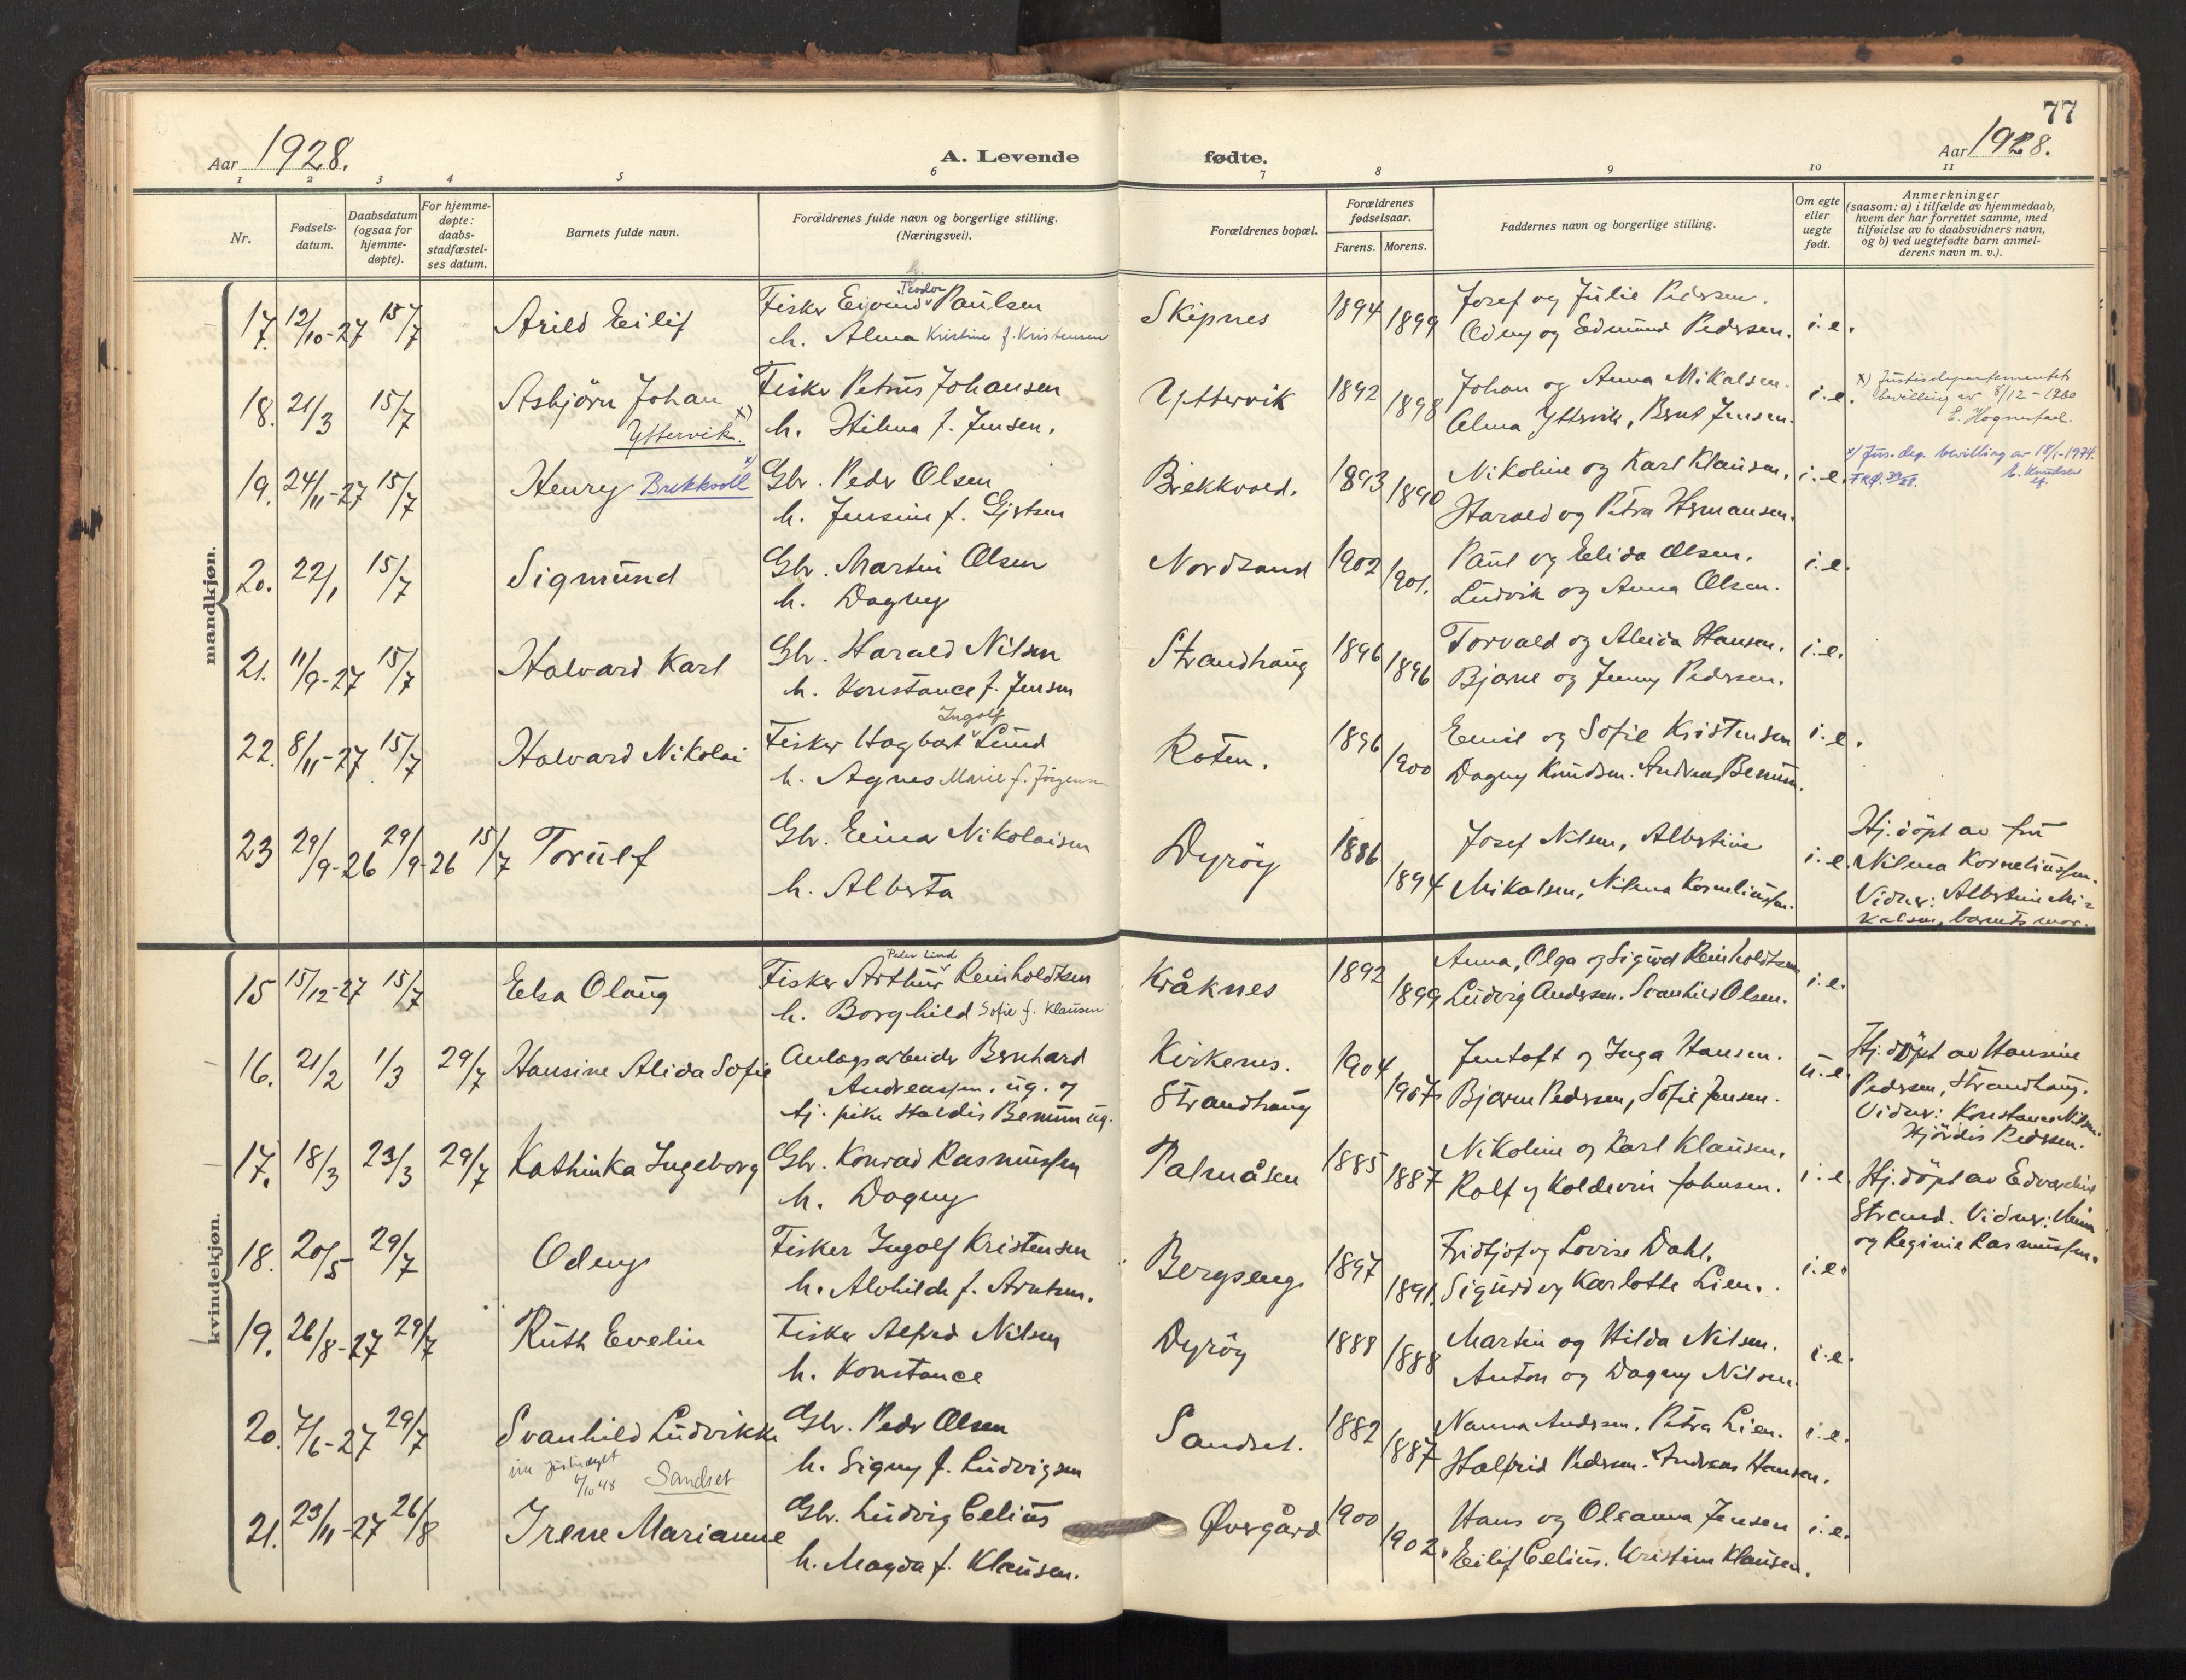 77
Aar 1928. A. Levende fødte. Aar 1928.
1 2 3 4 5 6 7 8 9 10 11
Nr.
Fødsels-
datum.
Daabsdatum
(ogsaa for
hjemme-
døpte).
For hjemme-
døpte:
daabs-
stadfæstel-
ses datum.
Barnets fulde navn.
Forældrenes fulde navn og borgerlige stilling.
(Næringsvei).
Forældrenes bopæl.
Forældrenes
fødselsaar.
Farens. Morens.
Faddernes navn og borgerlige stilling.
Om egte
eller
uegte
født.
Anmerkninger
(saasom: a) i tilfælde av hjemmedaab,
hvem der har forrettet samme, med
tilføielse av to daabsvidners navn,
og b) ved uegtefødte barn anmel-
derens navn m. v.).
mandkjøn.
Teodor
17. 12/10-27 15/7 Arild Eilif Fisker Eivind Paulsen Skipnes 1894 Josef og Julie Pedersen. i.e.
h. Alma Kristine f. Kristensen 1899 Odny og Edmund Pedersen.
18. 21/3 15/7 Asbjörn Johan Fisker Petrus Johansen Yttervik 1892 Johan og Anna Mikalsen. i.e. x) Justisdepartementets
Yttervik. x) h. Hilma f. Jensen. 1898 Alma Yttervik, Bernt Jensen. bevilling av 8/12-1960
E. Hognestad.
19. 24/11-27 15/7 Henry Brekkvoll x) Gbr. Peder Olsen Brekkvold. 1893 Nikoline og Karl Klausen. i.e. x) Jus. dep. bevilling av 18/1-1974.
h. Jensine f. Gjertsen 1890 Harald og Petra Hermansen. E. Knudsen
20. 22/1 15/7 Sigmund Gbr. Martin Olsen Nordsand 1902 Paul og Elida Olsen. i.e.
h. Dagny 1901. Ludvik og Anna Olsen.
21. 11/9-27 15/7 Halvard Karl Gbr. Harald Nilsen Strandhaug 1896 Torvald og Alida Hansen. i.e.
h. Konstance f. Jensen 1896 Bjarne og Jenny Pedersen.
Ingolf
22. 8/11-27 15/7 Halvard Nikolai Fisker Hagbart Lund Roten. 1896 Emil og Sofie Kristensen i.e.
h. Agnes Marie f. Jörgensen 1900 Dagny Knudsen. Andreas Bernum.
23 29/9-26 29/9-26 15/7 Torulf Gbr. Einar Nikolaisen Dyröy 1886 Josef Nilsen, Albertine i.e. Hj. döpt av fru
h. Alberta 1894 Mikalsen, Nilma Korneliussen. Nilma Korneliussen.
Vidner: Albertine Mi-
kalsen, barnets mor.
kvindekjøn.
Peder Lind
15 15/12-27 15/7 Elsa Olaug Fisker Arthur Reinholdtsen Kråknes 1892 Anna, Olga og Sigurd Reinholdtsen i.e.
h. Borghild Sofie f. Klausen 1899 Ludvig Andersen. Svanhild Olsen.
16. 21/2 1/3 29/7 Hansine Alida Sofie Anlegsarbeider Bernhard Kirkenes. 1904 Jentoft og Inga Hansen. u.e. Hj. döpt av Hansine
Andreassen, ug. og Strandhaug 1907 Bjarne Pedersen, Sofie Jensen. Pedersen, Strandhaug.
tj. pike Haldis Bernum ug. Vidner: Konstance Nilsen.
Hjördis Pedersen.
17. 18/3 23/3 29/7 Kathinka Ingeborg Gbr. Konrad Rasmussen Palmåsen 1885 Nikoline og Karl Klausen. i.e. Hj. döpt av Edvardine
h. Dagny 1887 Rolf og Koldevin Johnsen. Strand. Vidner: Mina
og Regine Rasmussen.
18. 20/5 29/7 Odny Fisker Ingolf Kristensen Bergseng 1897 Fridtjof og Lovise Dahl. i.e.
h. Alvhilde f. Arntsen. 1891. Sigurd og Karlotte Lien.
19. 26/8-27 29/7 Ruth Evelin Fisker Alfred Nilsen Dyröy 1888 Martin og Hilda Nilsen. i.e.
h. Konstance 1888 Anton og Dagny Nilsen.
20. 7/6-27 29/7 Svanhild Ludvikke Gbr. Peder Olsen Sandset. 1882 Nanna Andersen. Petra Lien. i.e.
6/10 48 Sandset h. Signy f. Ludvigsen 1887 Halfrid Pedersen. Andreas Hansen.
21. 23/11-27 26/8 Irene Marianne Gbr. Ludvig Celius Øvergård 1900 Hans og Oleanna Jensen i.e.
h. Magda f. Klausen. 1902. Eilif Celius. Kristine Klausen.